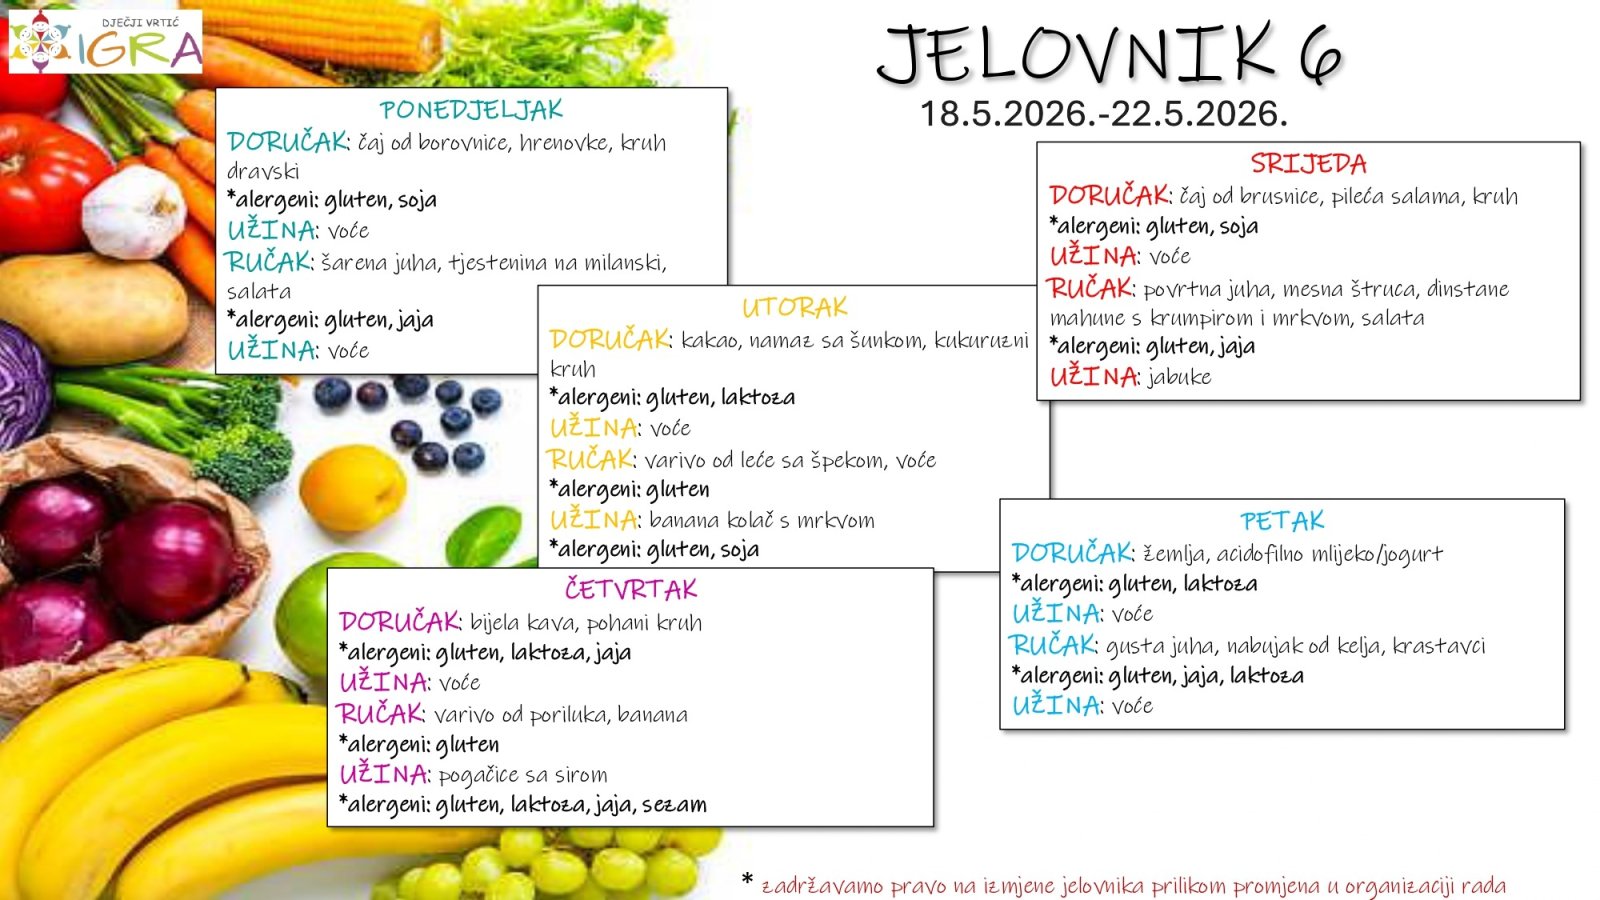 DJEČJI VRTIĆ
IGRA
JELOVNIK 6
18.5.2026.-22.5.2026.
PONEDJELJAK
DORUČAK: čaj od borovnice, hrenovke, kruh
dravski
*alergeni: gluten, soja
UŽINA: voće
RUČAK: šarena juha, tjestenina na milanski,
salata
*alergeni: gluten, jaja
UŽINA: voće
UTORAK
DORUČAK: kakao, namaz sa šunkom, kukuruzni
kruh
*alergeni: gluten, laktoza
UŽINA: voće
RUČAK: varivo od leće sa špekom, voće
*alergeni: gluten
UŽINA: banana kolač s mrkvom
*alergeni: gluten, soja
SRIJEDA
DORUČAK: čaj od brusnice, pileća salama, kruh
*alergeni: gluten, soja
UŽINA: voće
RUČAK: povrtna juha, mesna štruca, dinstane
mahune s krumpirom i mrkvom, salata
*alergeni: gluten, jaja
UŽINA: jabuke
ČETVRTAK
DORUČAK: bijela kava, pohani kruh
*alergeni: gluten, laktoza, jaja
UŽINA: voće
RUČAK: varivo od poriluka, banana
*alergeni: gluten
UŽINA: pogačice sa sirom
*alergeni: gluten, laktoza, jaja, sezam
PETAK
DORUČAK: žemlja, acidofilno mlijeko/jogurt
*alergeni: gluten, laktoza
UŽINA: voće
RUČAK: gusta juha, nabujak od kelja, krastavci
*alergeni: gluten, jaja, laktoza
UŽINA: voće
* zadržavamo pravo na izmjene jelovnika prilikom promjena u organizaciji rada